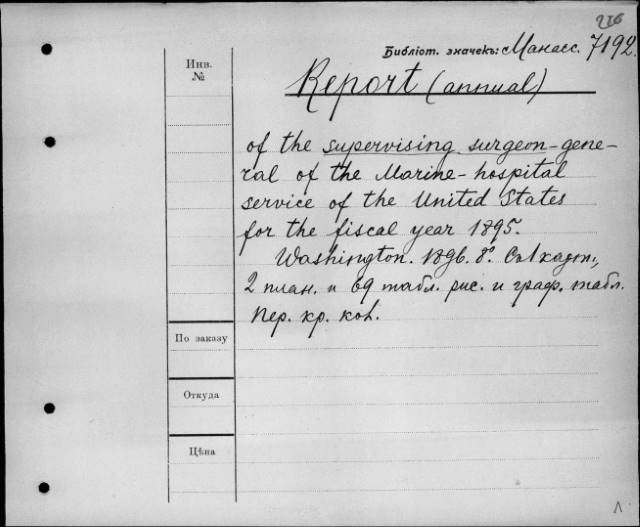 216
Библіот. значекъ: Манасс. 7192.
Инв.
№
Report (annual)
of the supervising surgeon-gene-
ral of the Marine-hospital
service of the United States
for the fiscal year 1895.
Washington. 1896. 8°. Съ 1 карт.,
2 план. и 69 табл. рис. и граф. табл.
Пер. кр. кол.
По заказу
Откуда
Цѣна